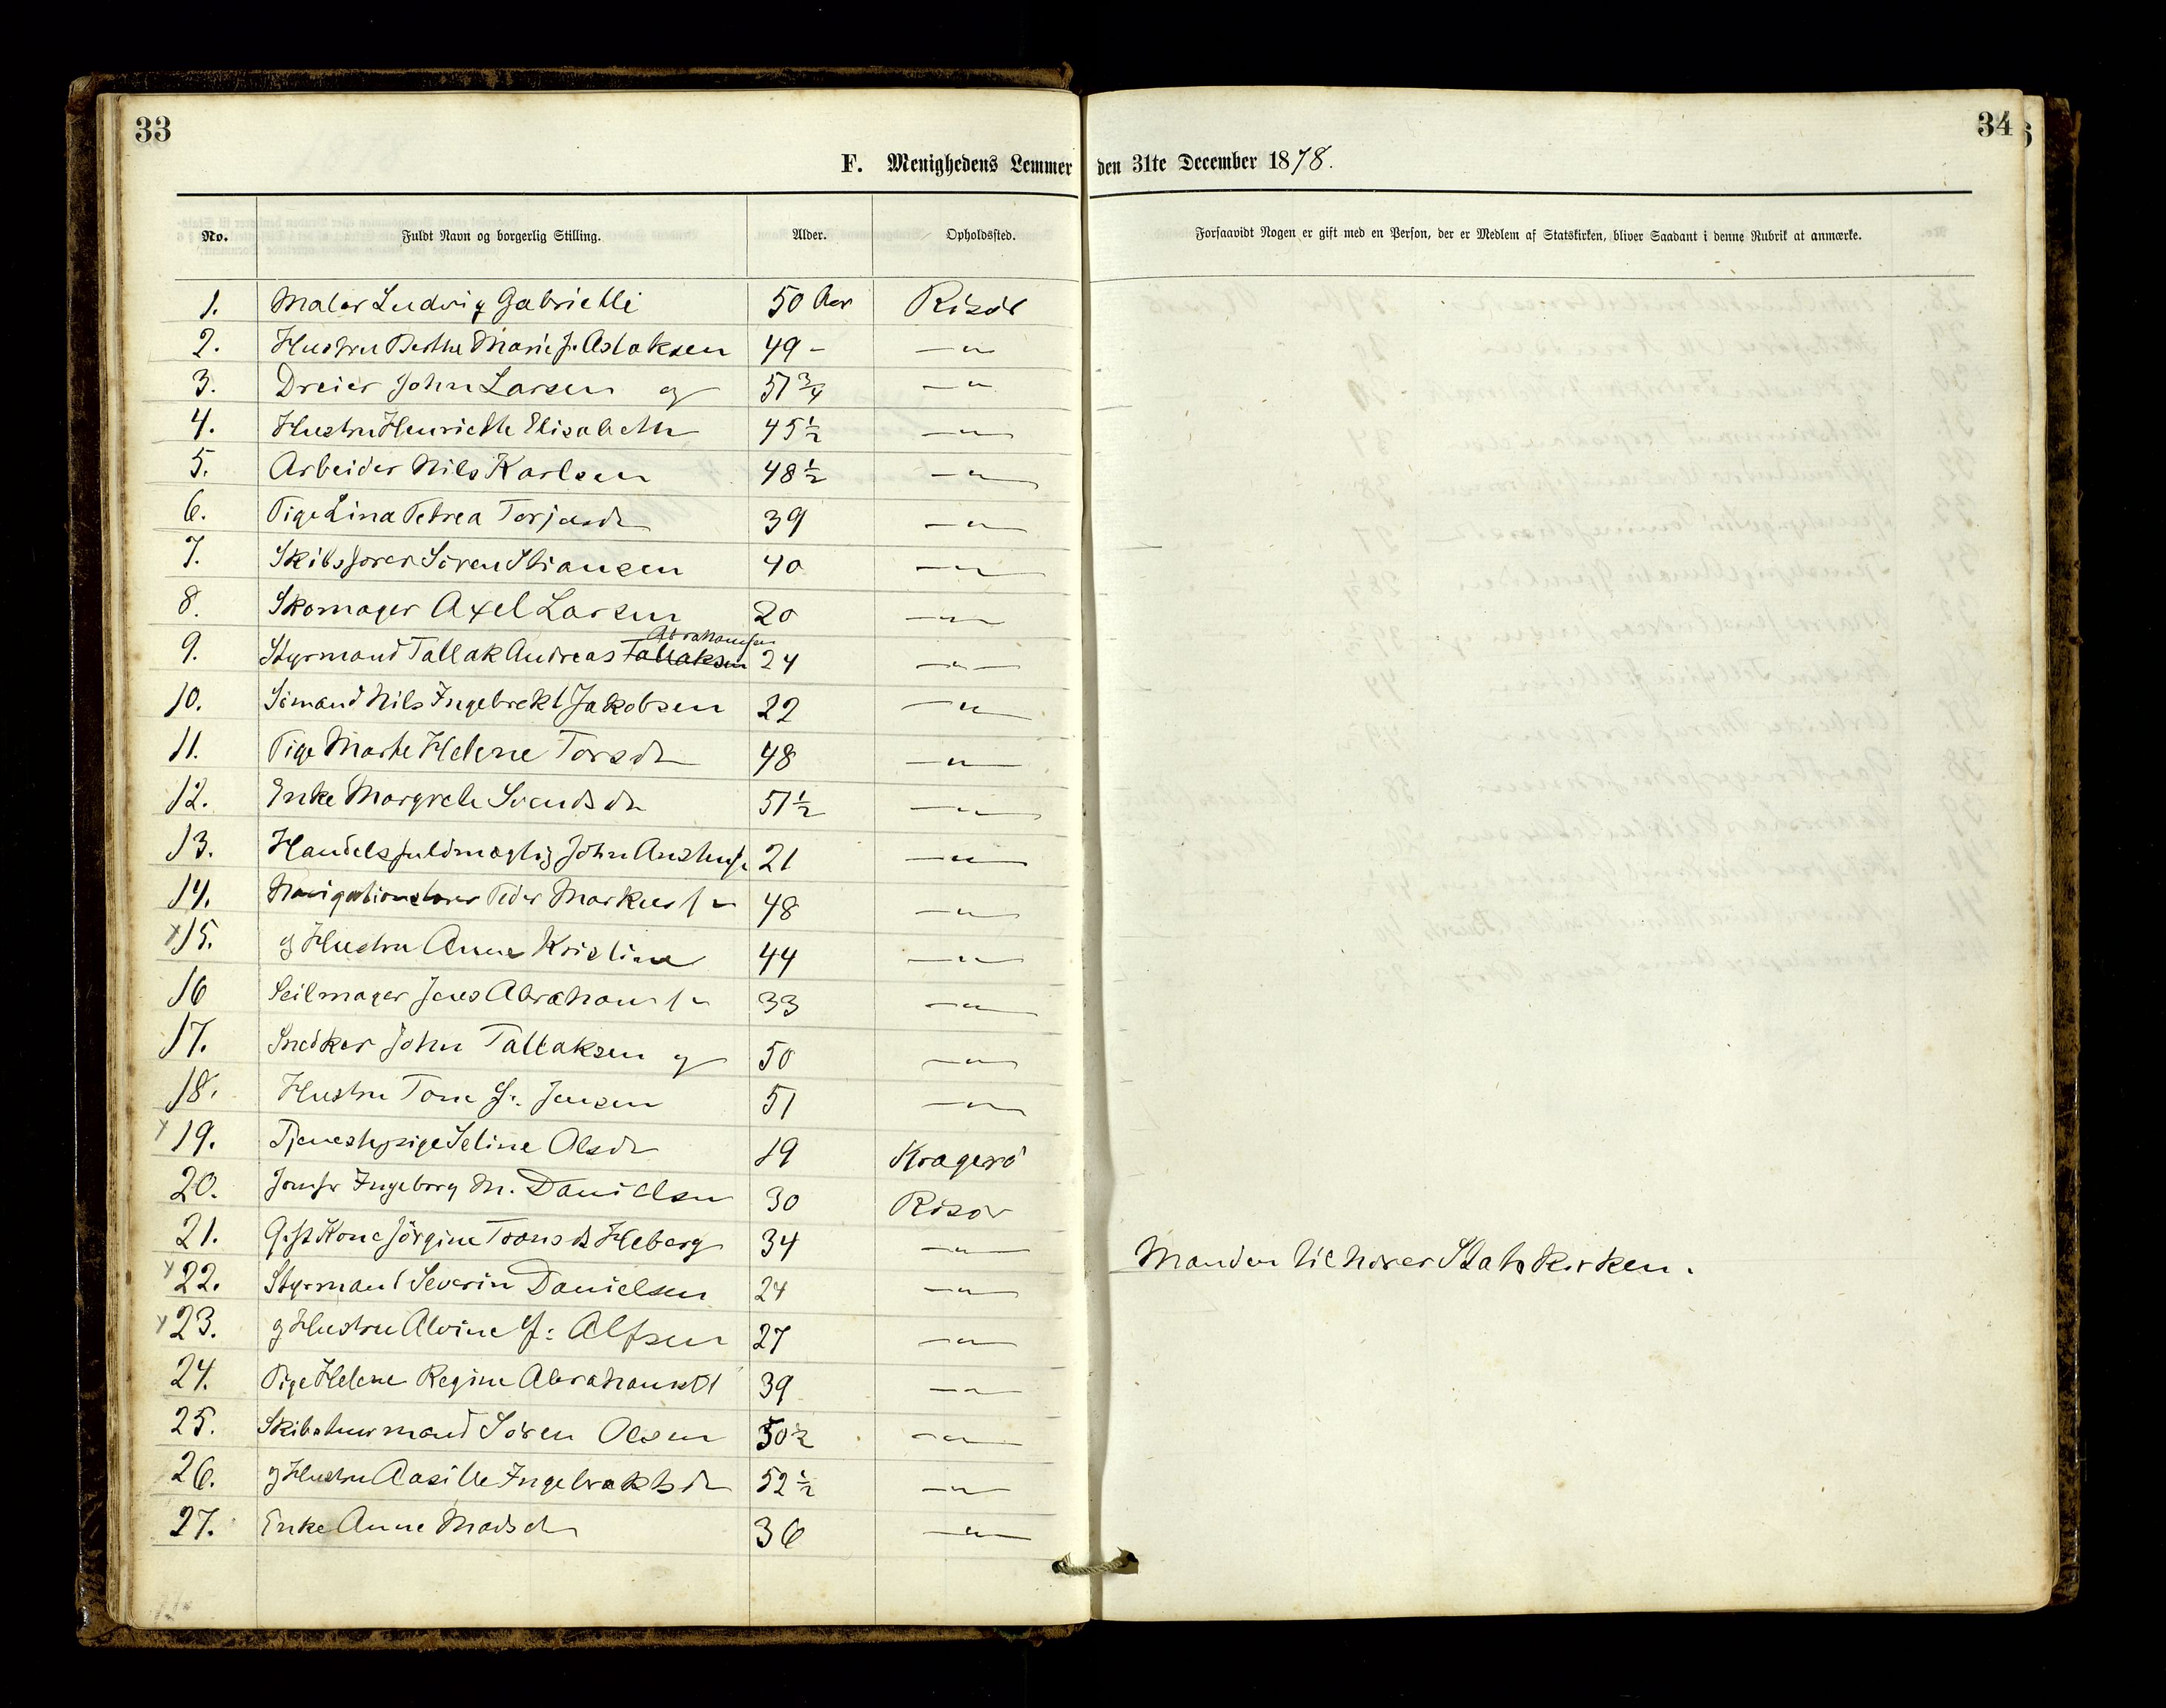 33
34
F. Menighedens Lemmer den 31te December 1878.
No. Fuldt Navn og borgerlig Stilling. Alder. Opholdssted. Forsaavidt Nogen er gift med en Person, der er Medlem af Statskirken, bliver Saadant i denne Rubrik at anmærke.
1. Maler Ludvig Gabrielli 50 Aar Risör
2. Hustru Berthe Marie f. Aslaksen 49 - —"—
3. Dreier John Larsen og 51 3/4 —"—
4. Hustru Henriette Elisabeth 45 1/2 —"—
5. Arbeider Nils Karlsen 48 1/2 —"—
6. Pige Lina Petrea Torjusdr 39 —"—
7. Skibsfører Sören Stiansen 40 —"—
8. Skomager Axel Larsen 20 —"—
9. Styrmand Tallak Andreas Tallaksen Abrahamsen 24 —"—
10. Sömand Nils Ingebrekt Jakobsen 22 —"—
11. Pige Marte Helene Torsdr 48 —"—
12. Enke Margrete Svendsdr 51 1/2 —"—
13. Handelsfuldmægtig John Anstensen 21 —"—
14. Navigationslærer Peder Markussen 48 —"—
15. og Hustru Anne Kristine 44 —"—
16 Seilmager Jens Abrahamsen 33 —"—
17. Snedker John Tallaksen og 50 —"—
18. Hustru Tone f. Jensen 51 —"—
19. Tjenestepige Seline Olsdr 19 Kragerö
20. Jomfr Ingeborg M. Danielsen 30 Risör
21. Gift Kone Jörgine Tronsdr Heberg 34 —"— Manden tilhører Statskirken.
22. Styrmand Severin Danielsen 24 —"—
23. og Hustru Alvine f: Alfsen 27 —"—
24. Pige Helene Regine Abrahamsdt 39 —"—
25. Skibstømmermand Sören Olsen 50 1/2 —"—
26. og Hustru Aasille Ingebraktsdr 52 1/2 —"—
27. Enke Anne Madsdr 36 —"—